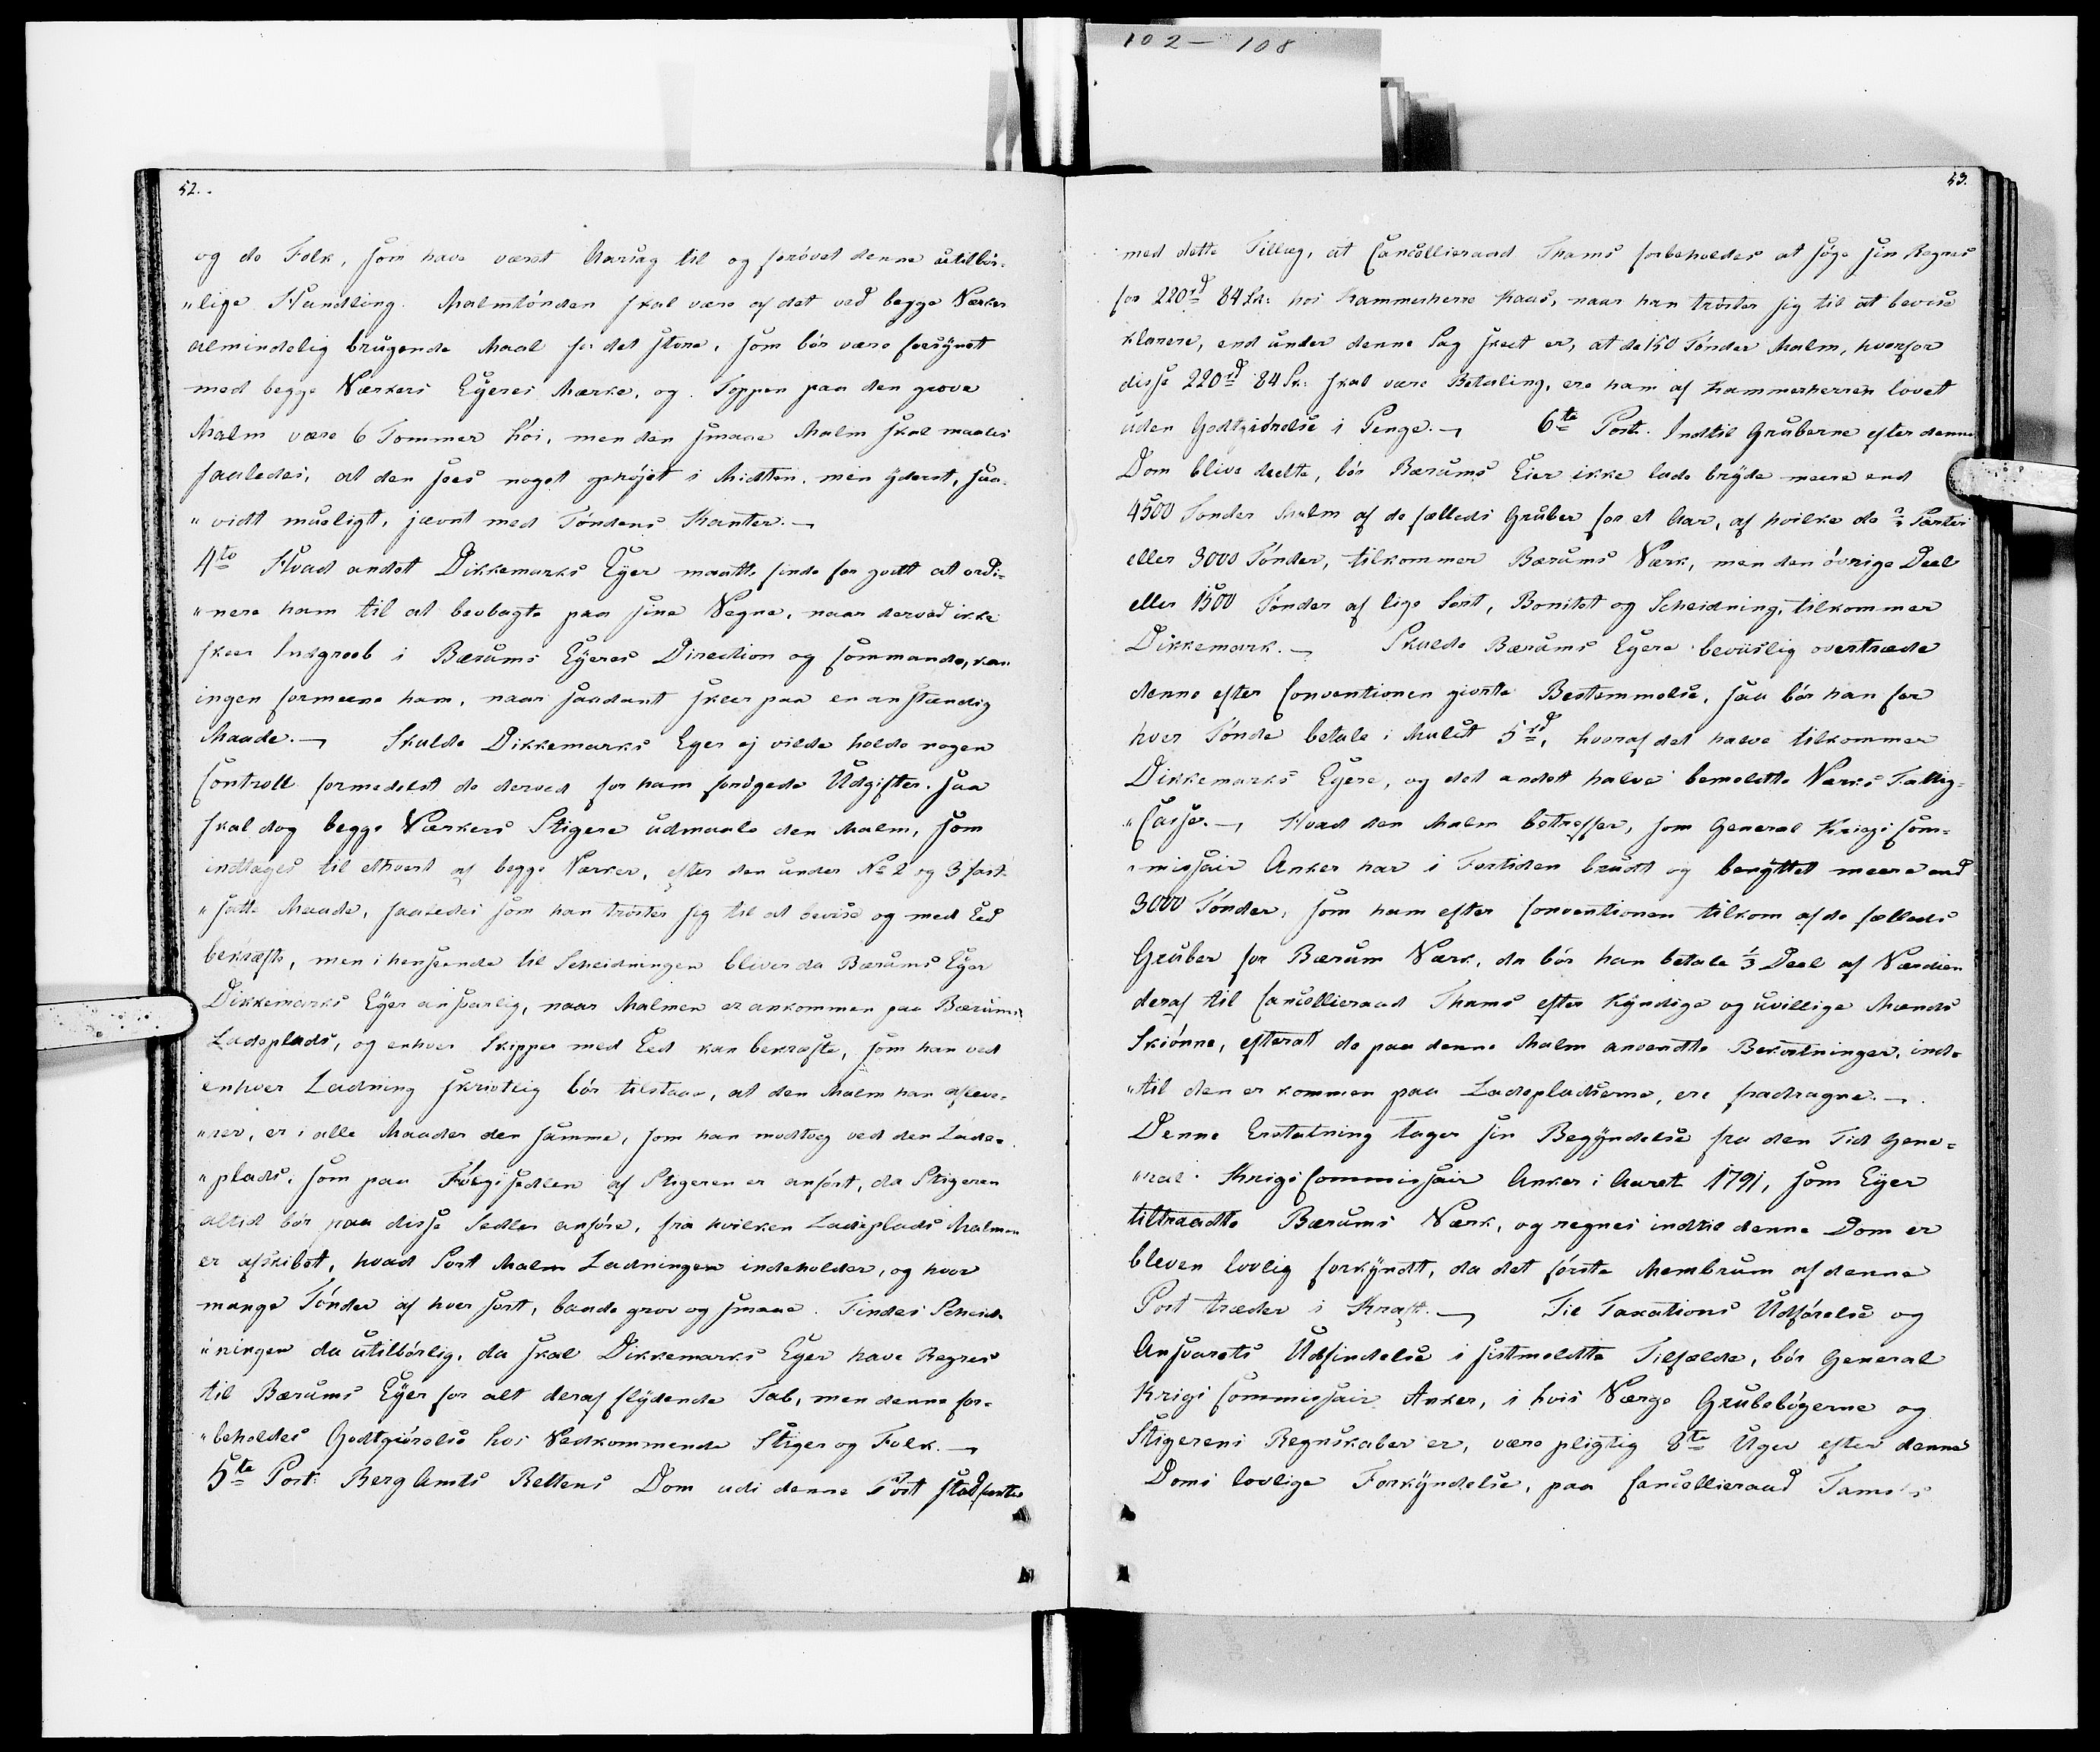 102 – 108
52.
og de Folk, som have været Aarsag til og forøvet denne utilbør-
„lige Handling. Malmtønden skal være af det ved begge Værker
almindelig brugende Maal for det store, som bør være forsÿnet
med begge Værkers Eÿeres Mærke, og Toppen paa den grove
Malm være 6 Tommer høi, men den smaae Malm skal maales
saaledes, at den sees noget ophøjet i Midten, men ÿderst, saa-
„vidt mueligt, jævnt med Tøndens Kanter. –
4to Hvad andet Dikkemarks Eÿer maatte finde for godt at ordi-
„nere ham til at beobagte paa sine Vegne, naar derved ikke
skeer Indgreeb i Bærums Eÿeres Direction og Commando, kan
ingen formeene ham, naar saadant skeer paa en anstændig
Maade. – Skulde Dikkemarks Eÿer ej vilde holde nogen
Controll formedelst de derved for ham forøgede Udgifter. saa
skal dog begge Værkers Stigere udmaale den Malm, som
indtages til ethvert af begge Værker, efter den under No 2 og 3 fast-
„satte Maade, saaledes som han trøster sig til at bevise og med Eed
bekræfte, men i henseende til Scheidningen bliver da Bærums Eÿer
Dikkemarks Eÿer ansvarlig, naar Malmen er ankommen paa Bærums
Ladeplads, og enhver Skipper med Eed kan bekræfte, som han ved
enhver Ladning skriftlig bør tilstaae, at den Malm han afleve-
„rer, er i alle Maader den samme, som han modtog ved den Lade-
„plads, som paa Følgesedlen af Stigeren er anført, da Stigeren
altid bør paa disse Sedler anføre, fra hvilken Ladeplads Malmen
er afskibet, hvad Sort Malm Ladningen indeholder, og hvor
mange Tønder af hver sort, baade grov og smaae. Findes Scheid-
„ningen da utilbørlig, da skal Dikkemarks Eÿer have Regres
til Bærums Eÿer for alt deraf flÿdende Tab, men denne for-
„beholdes Godtgiørelse hos Vedkommende Stiger og Folk. –
5te Post: BergAmts Rettens Dom udi denne Post stadfæstes
53.
med dette Tillæg, at Cancellieraad Thams forbeholdes at søge sin Regres
for 220rd 84 Sk: hos Kammerherre Kaas, naar han trøster sig til at bevise
klarere, end under denne Sag skeet er, at de 150 Tønder Malm, hvorfor
disse 220rd 84 Sk: skal være Betaling, ere ham af Kammerherren lovet
uden Godtgiørelse i Penge. – 6te Post. Indtil Gruberne efter denne
Dom blive deelte, bør Bærums Eier ikke lade brÿde meere end
4500 Tønder Malm af de fælleds Gruber for et Aar, af hvilke de Parter
eller 3000 Tønder, tilkommer Bærums Værk, men den øvrige Deel
eller 1500 Tønder af lige Sort, Bonitet og Scheidning, tilkommer
Dikkemark. – Skulde Bærums Eÿere beviislig overtræde
denne efter Conventionen giorte Bestemmelse, saa bør han for
hver Tønde betale i Mulct 5rd, hvoraf det halve tilkommer
Dikkemarks Eÿere, og det andet halve bemeldte Værks Fattig-
„Casse. – Hvad den Malm betræffer, som General Krigs Com-
„missair Anker har i Fortiden brudt og benÿttet meere end
3000 Tønder, som ham efter Conventionen tilkom af de fælleds
Gruber for Bærum Værk, da bør han betale 1/3 Deel af Værdien
deraf til Cancellieraad Thams efter Kÿndige og uvillige Mænds
Skiønne, efterat de paa denne Malm anvendte Bekostninger, ind-
„til den er kommen paa Ladepladserne, ere fradragne. –
Denne Erstatning tager sin Begÿndelse fra den Tid Gene-
„ral Krigs Commissair Anker i Aaret 1791, som Eÿer
tiltraadte Bærums Værk, og regnes indtil denne Dom er
bleven lovlig forkÿndt, da det første Membrum af denne
Post træder i Kraft. – Til Taxations Udførelse og
Ansvarets Udfindelse i sistmeldte Tilfælde, bør General
Krigs Commissair Anker, i hvis Værge Grubebøgerne og
Stigerens Regnskaber er, være pligtig 8te Uger efter denne
Doms lovlige Forkÿndelse, paa Cancellieraad Tams's